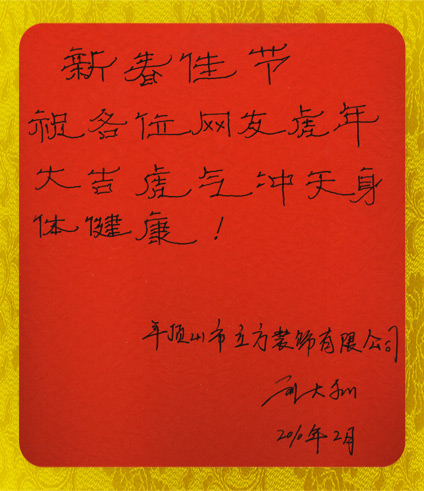 新春佳节
祝各位网友虎年
大吉虎气冲天身
体健康！
平顶山市立方装饰有限公司
大
2010年2月